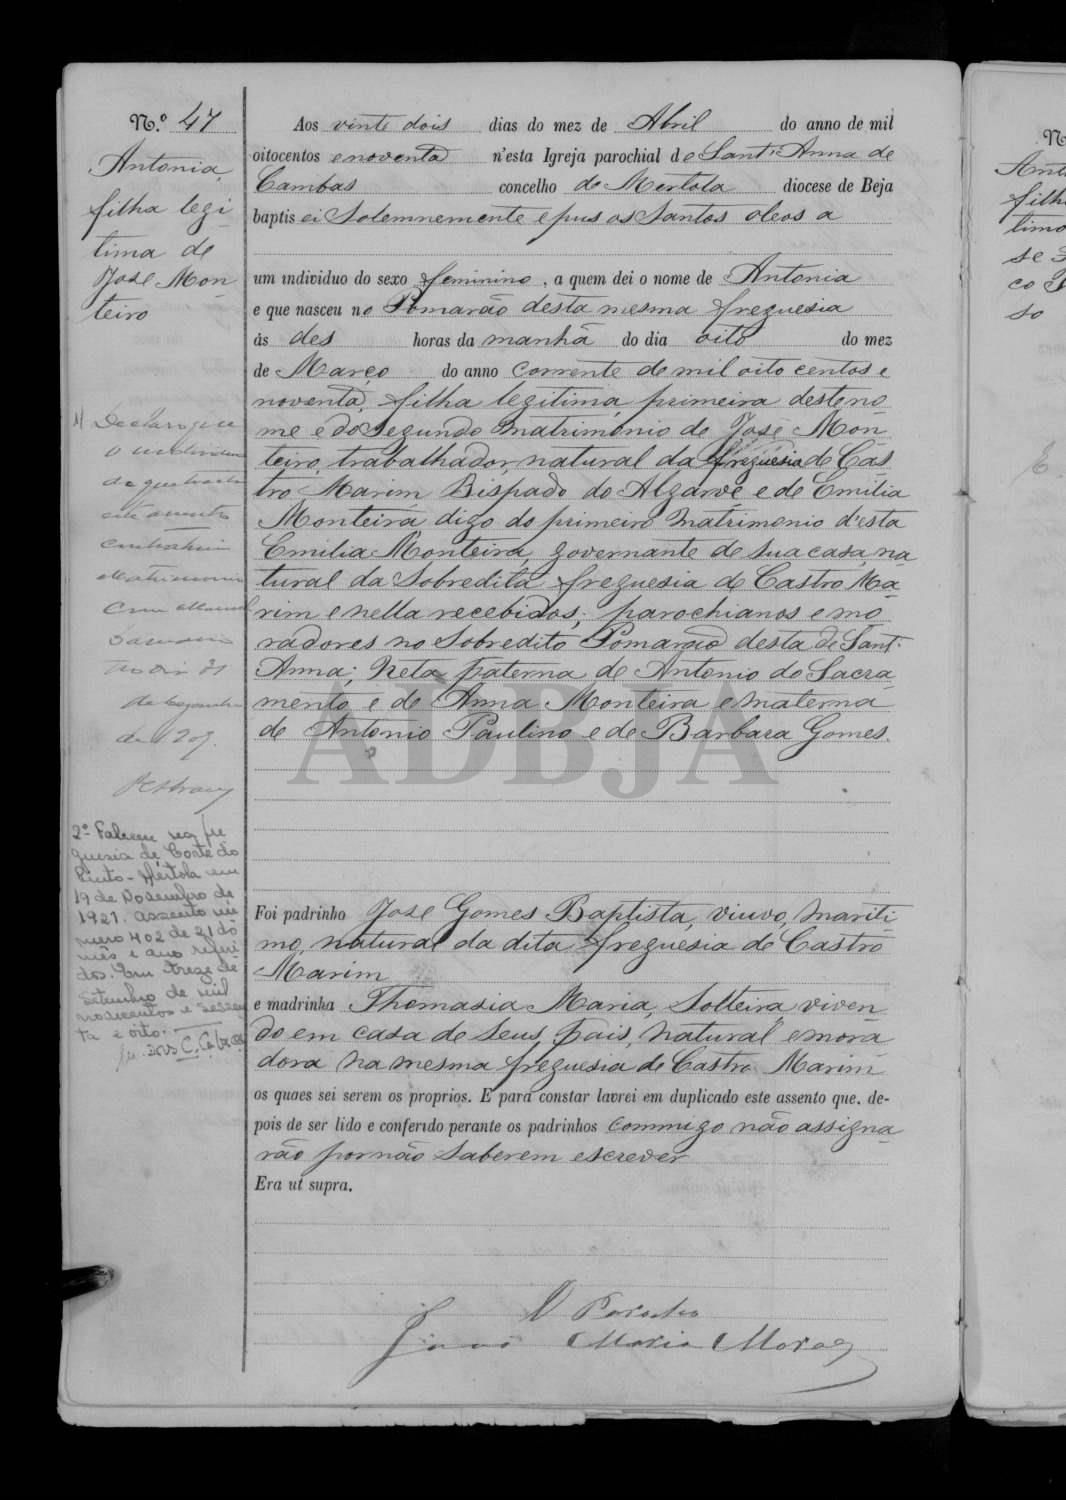 N.º 47
Antonia,
filha legi-
tima de
José Mon-
teiro
1) Declaro que
o individuo
de que trata
este assento
contrahiu
Matrimonio
com
no dia 21
de
de 1909.
2º Faleceu na fre
guesia de Corte do
Pinto - Mertola em
19 de Dosembro de
1921. assento nú
mero 402 de 21 do
mês e ano referi
dos. Em treze de
setembro de mil
novecentos e sessen
ta e oito.
Aos vinte dois dias do mez de Abril do anno de mil
oitocentos e noventa n'esta Igreja parochial de Sant'Anna de
Cambas concelho de Mertola diocese de Beja
baptisei Solemnemente e pus os Santos oleos a
um individuo do sexo feminino, a quem dei o nome de Antonia
e que nasceu no Pomarão desta mesma freguesia
ás des horas da manhã do dia oito do mez
de Março do anno corrente de mil oito centos e
noventa, filha legitima, primeira deste no-
me e do Segundo Matrimonio de José Mon-
teiro, trabalhador, natural da freguesia de Cas-
tro Marim Bispado do Algarve e de Emilia
Monteira, digo do primeiro Matrimonio d'esta
Emilia Monteira, governante de sua casa, na-
tural da Sobredita freguesia de Castro Ma-
rim e nella recebidos; parochianos e mo
radores no Sobredito Pomarão desta de Sant'
Anna; Neta paterna de Antonio do Sacra-
mento, e de Anna Monteira e materna
de Antonio Paulino e de Barbara Gomes.
ADBJA
Foi padrinho José Gomes Baptista, viuvo, mariti-
mo, natural da dita freguesia de Castro
Marim
e madrinha Thomasia Maria, Solteira viven-
do em casa de Seus pais, natural e mora-
dora na mesma freguesia de Castro Marim
os quaes sei serem os proprios. E para constar lavrei em duplicado este assento que, de-
pois de ser lido e conferido perante os padrinhos commigo não assigna-
rão por não Saberem escrever
Era ut supra.
O Parocho
Maria Moraes
Nº
filh
tima
se
co
so